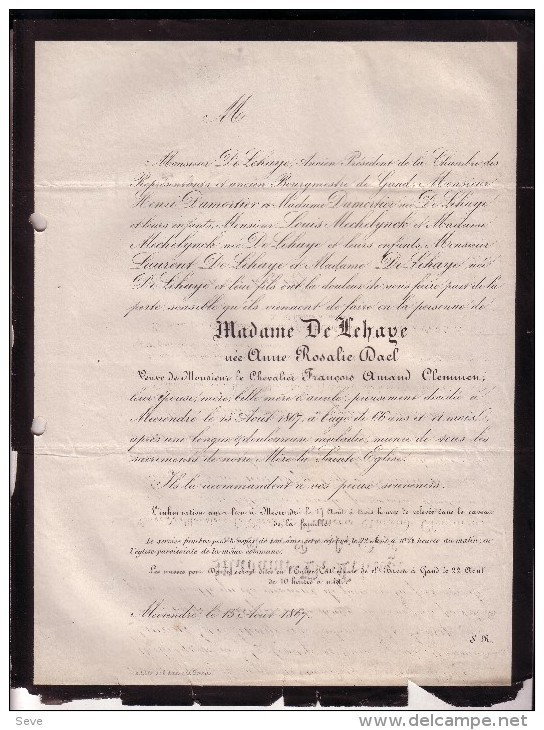 M
Monsieur De Lehaye, Ancien Président de la Chambre des
Représentants et ancien Bourgmestre de Gand; Monsieur
Henri Dumortier et Madame Dumortier née De Lehaye
et leurs enfants, Monsieur Louis Mechelynck et Madame
Mechelynck née De Lehaye et leurs enfants, Monsieur
Laurent De Lehaye et Madame De Lehaye née
De Lehaye et leur fils ont la douleur de vous faire part de la
perte sensible qu'ils viennent de faire en la personne de
Madame De Lehaye
née Anne Rosalie Dael
Veuve de Monsieur le Chevalier François Amand Clemmen,
leur épouse, mère, belle mère & aïeule, pieusement décédée à
le 15 Août 1867, à l'âge de 66 ans et 11 mois,
après une longue & douloureuse maladie, munie de tous les
sacrements de notre Mère la Sainte Eglise.
Ils la recommandent à vos pieux souvenirs.
L'inhumation aura lieu à le 17 Août à trois heures de relevée dans le caveau
de la famille.
Le service funèbre pour le repos de son âme sera célébré, le 22 Août à 10½ heures du matin, en
l'église paroissiale de la même commune.
Des messes pour seront dites en l'Eglise de St Bavon à Gand le 22 Août
de 10 heures à midi.
le 15 Août 1867.
Seve
www.delcampe.net